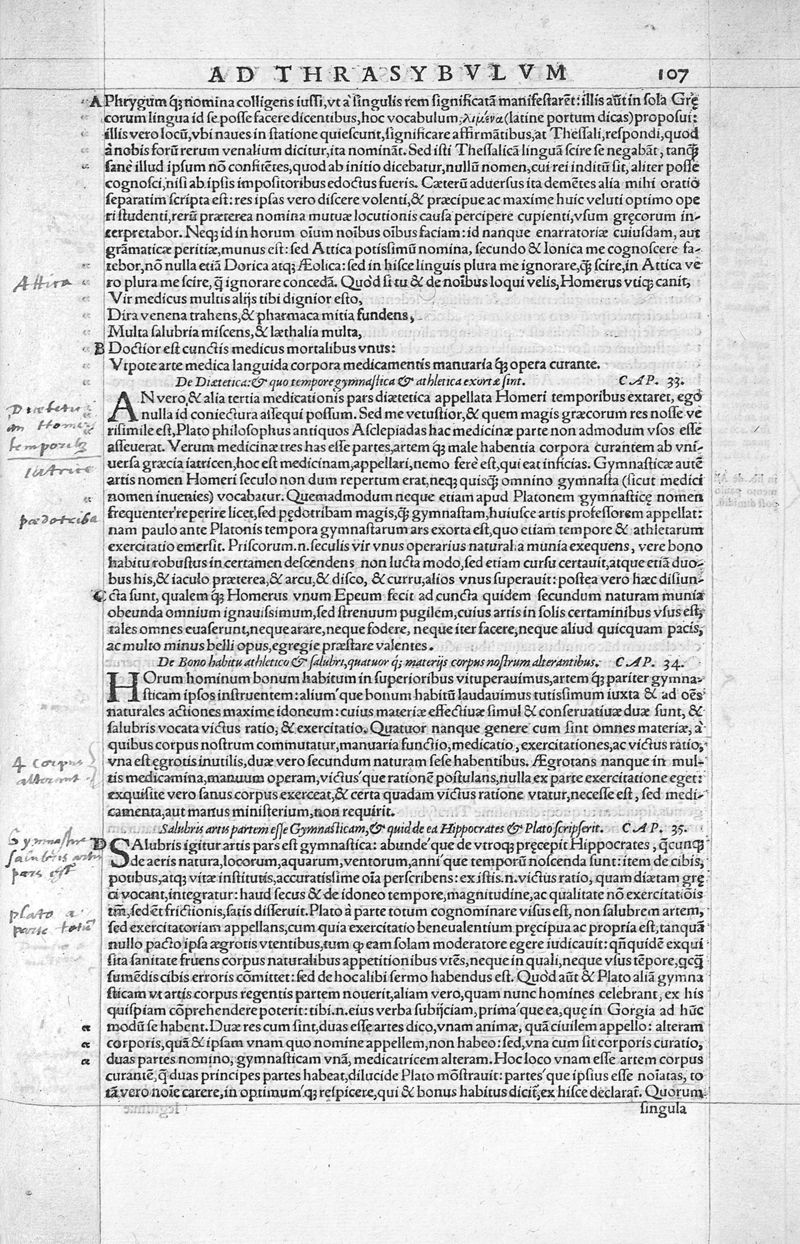 AD THRASYBVLVM 107
A Phrygum q́; nomina colligens iussi, vt à singulis rem significatã manifestarẽt: illis aũt in sola Gręcorum
lingua id se posse facere dicentibus, hoc vocabulum, λιμένα (latine portum dicas) proposui:
illis vero locũ, vbi naues in statione quiescunt, significare affirmãtibus, at Thessali, respondi, quod
à nobis forũ rerum venalium dicitur, ita nominãt. Sed isti Thessalicã linguã scire se negabãt, tanq̃
sane illud ipsum nõ confitẽtes, quod ab initio dicebatur, nullũ nomen, cui rei inditũ sit, aliter posse
cognosci, nisi ab ipsis impositoribus edoctus fueris. Cæterũ aduersus ita demẽtes alia mihi oratio
separatim scripta est: res ipsas vero discere volenti, & præcipue ac maxime huic veluti optimo ope
ri studenti, rerũ præterea nomina mutuæ locutionis causa percipere cupienti, vsum gręcorum in-
terpretabor. Neq; id in horum oĩum noĩbus oĩbus faciam: id nanque enarratoriæ cuiusdam, aut
grãmaticæ peritiæ, munus est: sed Attica potissimũ nomina, secundo & Ionica me cognoscere fa-
tebor, nõ nulla etiã Dorica atq; Æolica: sed in hisce linguis plura me ignorare, q̃ scire, in Attica ve
Attica
ro plura me scire, q̃ ignorare concedã. Quòd si tu & de noĩbus loqui velis, Homerus vtiq; canit,
Vir medicus multis alijs tibi dignior esto,
Dira venena trahens, & pharmaca mitia fundens,
Multa salubria miscens, & læthalia multa,
B Doctior est cunctis medicus mortalibus vnus:
Vtpote arte medica languida corpora medicamentis manuaria q́; opera curante.
De Diætetica: & quo tempore gymnastica & athletica exortæ sint. CAP. 33.
AN vero, & alia tertia medicationis pars diætetica appellata Homeri temporibus extaret, ego
nulla id coniectura assequi possum. Sed me vetustior, & quem magis græcorum res nosse ve
risimile est, Plato philosophus antiquos Asclepiadas hac medicinæ parte non admodum vsos esse
asseuerat. Verum medicinæ tres has esse partes, artem q́; male habentia corpora curantem ab vni-
uersa græcia iatricen, hoc est medicinam, appellari, nemo fere est, qui eat inficias. Gymnasticæ autẽ
Homeri temporib;
iatrice
artis nomen Homeri seculo non dum repertum erat, neq; quisq̃ omnino gymnasta (sicut medici
nomen inuenies) vocabatur. Quemadmodum neque etiam apud Platonem gymnasticę nomen
pædotriba
frequenter reperire licet, sed pędotribam magis, q̃ gymnastam, huiusce artis professorem appellat:
nam paulo ante Platonis tempora gymnastarum ars exorta est, quo etiam tempore & athletarum
exercitatio emersit. Priscorum .n. seculis vir vnus operarius naturalia munia exequens, vere bono
habitu robustus in certamen descendens non lucta modo, sed etiam cursu certauit, atque etiã duo-
bus his, & iaculo præterea, & arcu, & disco, & curru, alios vnus superauit: postea vero hæc disiun-
C cta sunt, qualem q́; Homerus vnum Epeum fecit ad cuncta quidem secundum naturam munia
obeunda omnium ignauissimum, sed strenuum pugilem, cuius artis in solis certaminibus vsus est,
tales omnes euaserunt, neque arare, neque fodere, neque iter facere, neque aliud quicquam pacis,
ac multo minus belli opus, egregie præstare valentes.
De Bono habitu athletico & salubri, quatuor q́; materijs corpus nostrum alterantibus. CAP. 34.
HOrum hominum bonum habitum in superioribus vituperauimus, artem q́; pariter gymna-
sticam ipsos instruentem: alium'que bonum habitũ laudauimus tutissimum iuxta & ad oẽs
naturales actiones maxime idoneum: cuius materiæ effectiuæ simul & conseruatiuæ duæ sunt, &
salubris vocata victus ratio, & exercitatio. Quatuor nanque genere cum sint omnes materiæ, à
quibus corpus nostrum commutatur, manuaria functio, medicatio, exercitationes, ac victus ratio,
4 corpus alterant
vna est ęgrotis inutilis, duæ vero secundum naturam sese habentibus. Ægrotans nanque in mul-
tis medicamina, manuum operam, victus'que rationẽ postulans, nulla ex parte exercitatione eget:
exquisite vero sanus corpus exerceat, & certa quadam victus ratione vtatur, necesse est, sed medi-
camenta, aut manus ministerium, non requirit.
Salubris artis partem esse Gymnasticam, & quid de ea Hippocrates & Plato scripserit. CAP. 35.
Gymnastice salubris artis pars est
D SAlubris igitur artis pars est gymnastica: abunde'que de vtroq; pręcepit Hippocrates, q̃cunq;
de aeris natura, locorum, aquarum, ventorum, anni'que temporũ noscenda sunt: item de cibis,
potibus, atq; vitæ institutis, accuratissime oĩa perscribens: ex istis .n. victus ratio, quam diætam grę
ci vocant, integratur: haud secus & de idoneo tempore, magnitudine, ac qualitate nõ exercitatiõis
plato a parte totũ
tm̃, sed et frictionis, satis disseruit. Plato à parte totum cognominare visus est, non salubrem artem,
sed exercitatoriam appellans, cum quia exercitatio beneualentium pręcipua ac propria est, tanquã
nullo pacto ipsa ægrotis vtentibus, tum q̃ eam solam moderatore egere iudicauit: qñquidẽ exqui
sita sanitate fruens corpus naturalibus appetitionibus vtẽs, neque in quali, neque vsus tẽpore, qcq̃
sumẽdis cibis erroris cõmittet: sed de hoc alibi sermo habendus est. Quòd aũt & Plato aliã gymna
sticam vt artis corpus regentis partem nouerit, aliam vero, quam nunc homines celebrant, ex his
quispiam cõprehendere poterit: tibi .n. eius verba subijciam, prima'que ea, quę in Gorgia ad hũc
modũ se habent. Duæ res cum sint, duas esse artes dico, vnam animæ, quã ciuilem appello: alteram
corporis, quã & ipsam vnam quo nomine appellem, non habeo: sed, vna cum sit corporis curatio,
duas partes nomino, gymnasticam vnã, medicatricem alteram. Hoc loco vnam esse artem corpus
curantẽ, q̃ duas principes partes habeat, dilucide Plato mõstrauit: partes'que ipsius esse noĩatas, to
tã vero noĩe carere, in optimum'q; respicere, qui & bonus habitus dicit̃, ex hisce declarat̃. Quorum
singula